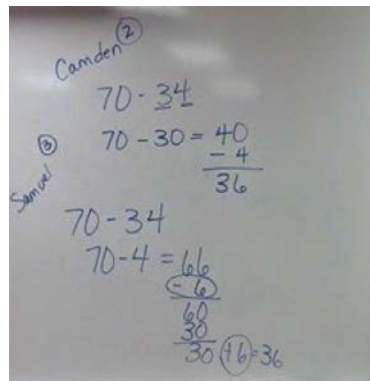 Camden ②
70 - 34
70 - 30 = 40
- 4
36
Samuel ③
70 - 34
70 - 4 = 66
- 6
60
30
30 +6 = 36